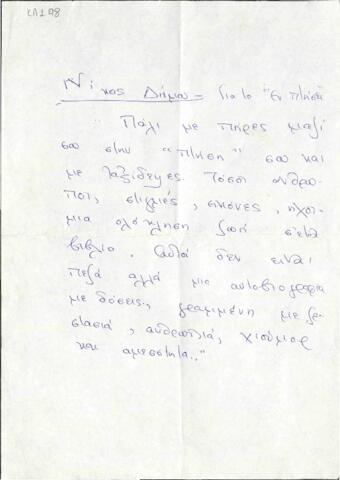 ΚΛ1.78
Νίκος Δήμου - Για το "Εν πτήσει
"Πάλι με πήρες μαζί
σου στην "πτήση" σου και
με ταξίδεψες. Τόσοι άνθρω-
ποι, στιγμές, εικόνες, ήχοι-
μια ολόκληρη ζωή σ'ένα
βιβλίο. Αυτά δεν είναι
πεζά αλλά μια αυτοβιογραφία
με δόσεις, γραμμένη με ζε-
στασιά, ανθρωπιά, χιούμορ
και αμεσότητα.."